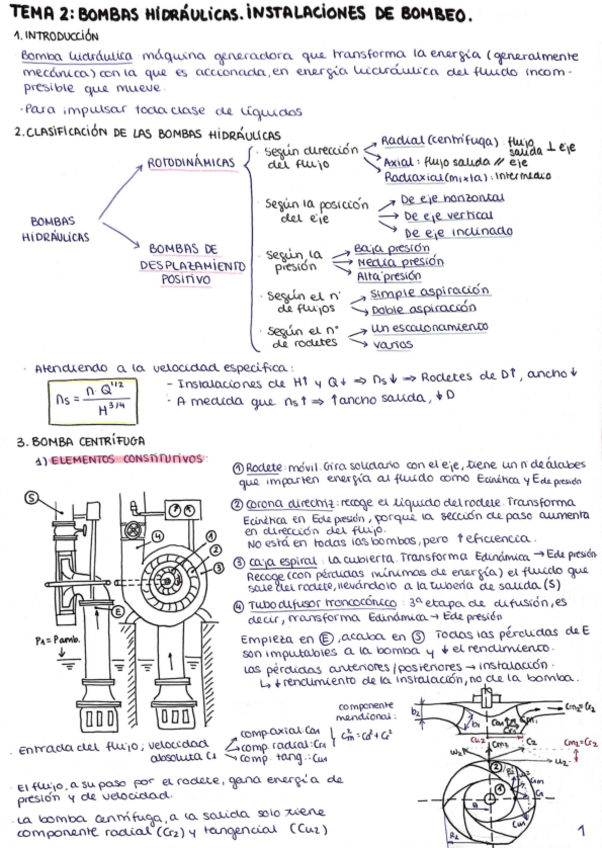 TEMA 2: BOMBAS HIDRÁULICAS. INSTALACIONES DE BOMBEO.
1. INTRODUCCIÓN
Bomba hidráulica: máquina generadora que transforma la energía (generalmente
mecánica) con la que es accionada, en energía hidráulica del fluido incom-
presible que mueve.
· Para impulsar toda clase de líquidos
2. CLASIFICACIÓN DE LAS BOMBAS HIDRÁULICAS
BOMBAS HIDRÁULICAS
ROTODINÁMICAS
BOMBAS DE
DESPLAZAMIENTO
POSITIVO
· Según dirección del flujo
Radial (centrífuga): flujo salida ⊥ eje
Axial: flujo salida // eje
Radiaxial (mixta): Intermedio
· Según la posición del eje
De eje horizontal
De eje vertical
De eje inclinado
· Según la presión
Baja presión
Media presión
Alta presión
· Según el nº de flujos
Simple aspiración
Doble aspiración
· Según el nº de rodetes
Un escalonamiento
varios
· Atendiendo a la velocidad específica:
ns = n·Q^1/2 / H^3/4
- Instalaciones de H↑ y Q↓ ⇒ ns↓ ⇒ Rodetes de D↑, ancho↓
- A medida que ns↑ ⇒ ↑ancho salida, ↓D
3. BOMBA CENTRÍFUGA
1) ELEMENTOS CONSTITUTIVOS:
① Rodete: móvil. Gira solidario con el eje, tiene un nº de álabes
que imparten energía al fluido como Ecinética y E de presión
② Corona directriz: recoge el líquido del rodete. Transforma
Ecinética en E de presión, porque la sección de paso aumenta
en dirección del flujo.
No está en todas las bombas, pero ↑ eficiencia.
③ Caja espiral: la cubierta. Transforma Edinámica → E de presión
Recoge (con pérdidas mínimas de energía) el fluido que
sale del rodete, llevándolo a la tubería de salida (S)
④ Tubo difusor troncocónico: 3ª etapa de difusión, es
decir, transforma Edinámica → E de presión
Empieza en Ⓔ, acaba en Ⓢ. Todas las pérdidas de E
son imputables a la bomba y ↓ el rendimiento.
Las pérdidas anteriores/posteriores → instalación.
↳ ↓ rendimiento de la instalación, no de la bomba.
S
4
1
2
3
E
PA = Pamb.
· Entrada del flujo, velocidad absoluta c1
comp. axial: Ca1
comp. radial: Cr1
comp. tang.: Cu1
componente
meridional:
· El flujo, a su paso por el rodete, gana energía de
presión y de velocidad.
· La bomba centrífuga, a la salida solo tiene
componente radial (Cr2) y tangencial (Cu2)
b2
b1
Cm2=Cr2
Cu2
Cm2
C2
Cm2=Cr2
w2
u2
2
1
R2
1